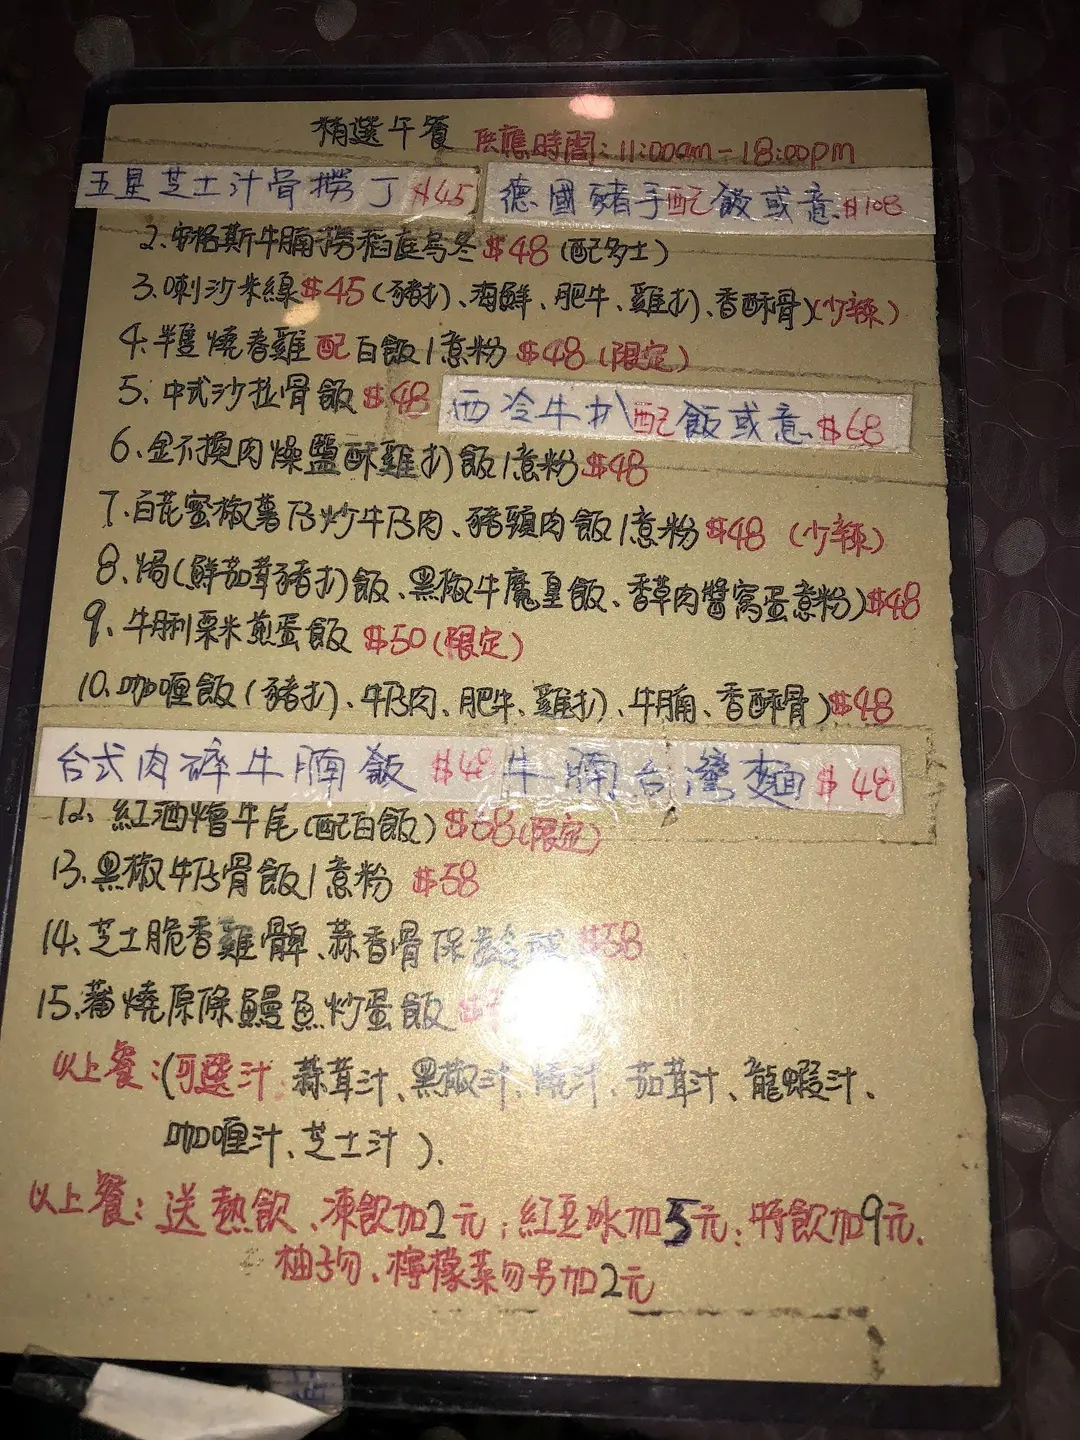 精選午餐 供應時間：11:00am-18:00pm
五星芝士汁骨撈丁 $45 德國豬手配飯或意 $108
2.安格斯牛腩撈稻庭烏冬 $48 (配多士)
3.喇沙米線 $45 (豬扒)、海鮮、肥牛、雞扒)、香酥骨)(少辣)
4.半隻燒春雞配白飯/意粉 $48 (限定)
5.中式沙拉骨飯 $48 西冷牛扒配飯或意 $68
6.金不換肉燥鹽酥雞扒飯/意粉 $48
7.百花蜜椒薯仔炒牛仔肉、豬頸肉飯/意粉 $48 (少辣)
8.焗(鮮茄茸豬扒)飯、黑椒牛魔皇飯、香草肉醬窩蛋意粉) $48
9.牛脷粟米煎蛋飯 $50 (限定)
10.咖喱飯 (豬扒)、牛仔肉、肥牛、雞扒)、牛腩、香酥骨) $48
台式肉碎牛腩飯 $48 牛腩台灣麵 $48
12.紅酒燴牛尾 (配白飯) (限定)
13.黑椒牛仔骨飯/意粉 $58
14.芝士脆香雞髀、蒜香骨 $58
15.蒲燒原條鰻魚炒蛋飯
以上餐：(可選汁：蒜茸汁、黑椒汁、燒汁、茄茸汁、龍蝦汁、
咖喱汁、芝士汁).
以上餐：送熱飲、凍飲加2元；紅豆冰加5元；特飲加9元.
柚子勿、檸檬菜勿另加2元